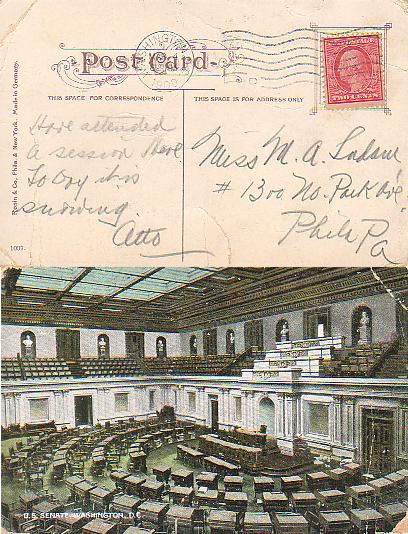 WASHINGTON
Post Card
THIS SPACE FOR CORRESPONDENCE
THIS SPACE IS FOR ADDRESS ONLY
TWO CENTS
Have attended
a session here
To day it is
snowing
Otto
Miss M. A.
# 1300 No. Park Ave
Phila Pa
& Co., Phila. & New York. Made in Germany.
1007.
U. S. SENATE-WASHINGTON, D.C.